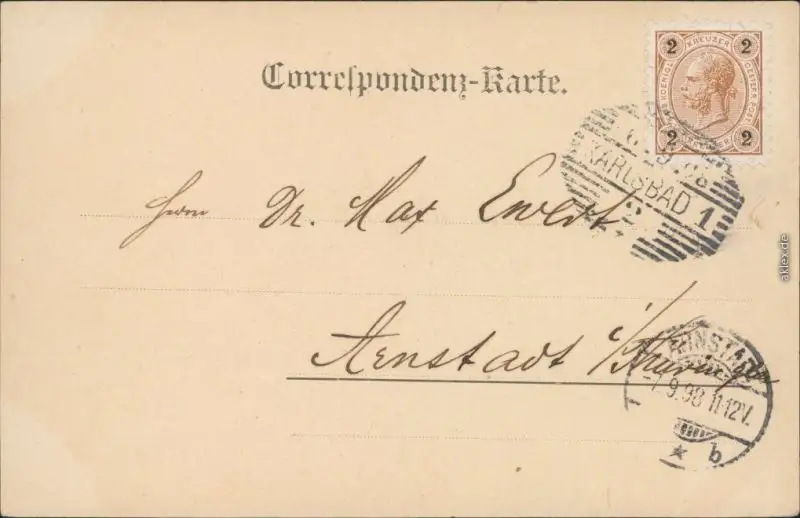 Correspondenz-Karte.
2 KREUZER 2
2 2
6 9 98
KARLSBAD 1
2
Herrn Dr. Max Ewert
Arnstadt i/Thüring
ARNSTADT
-7.9.98 11-12V.
* b
aklex.de